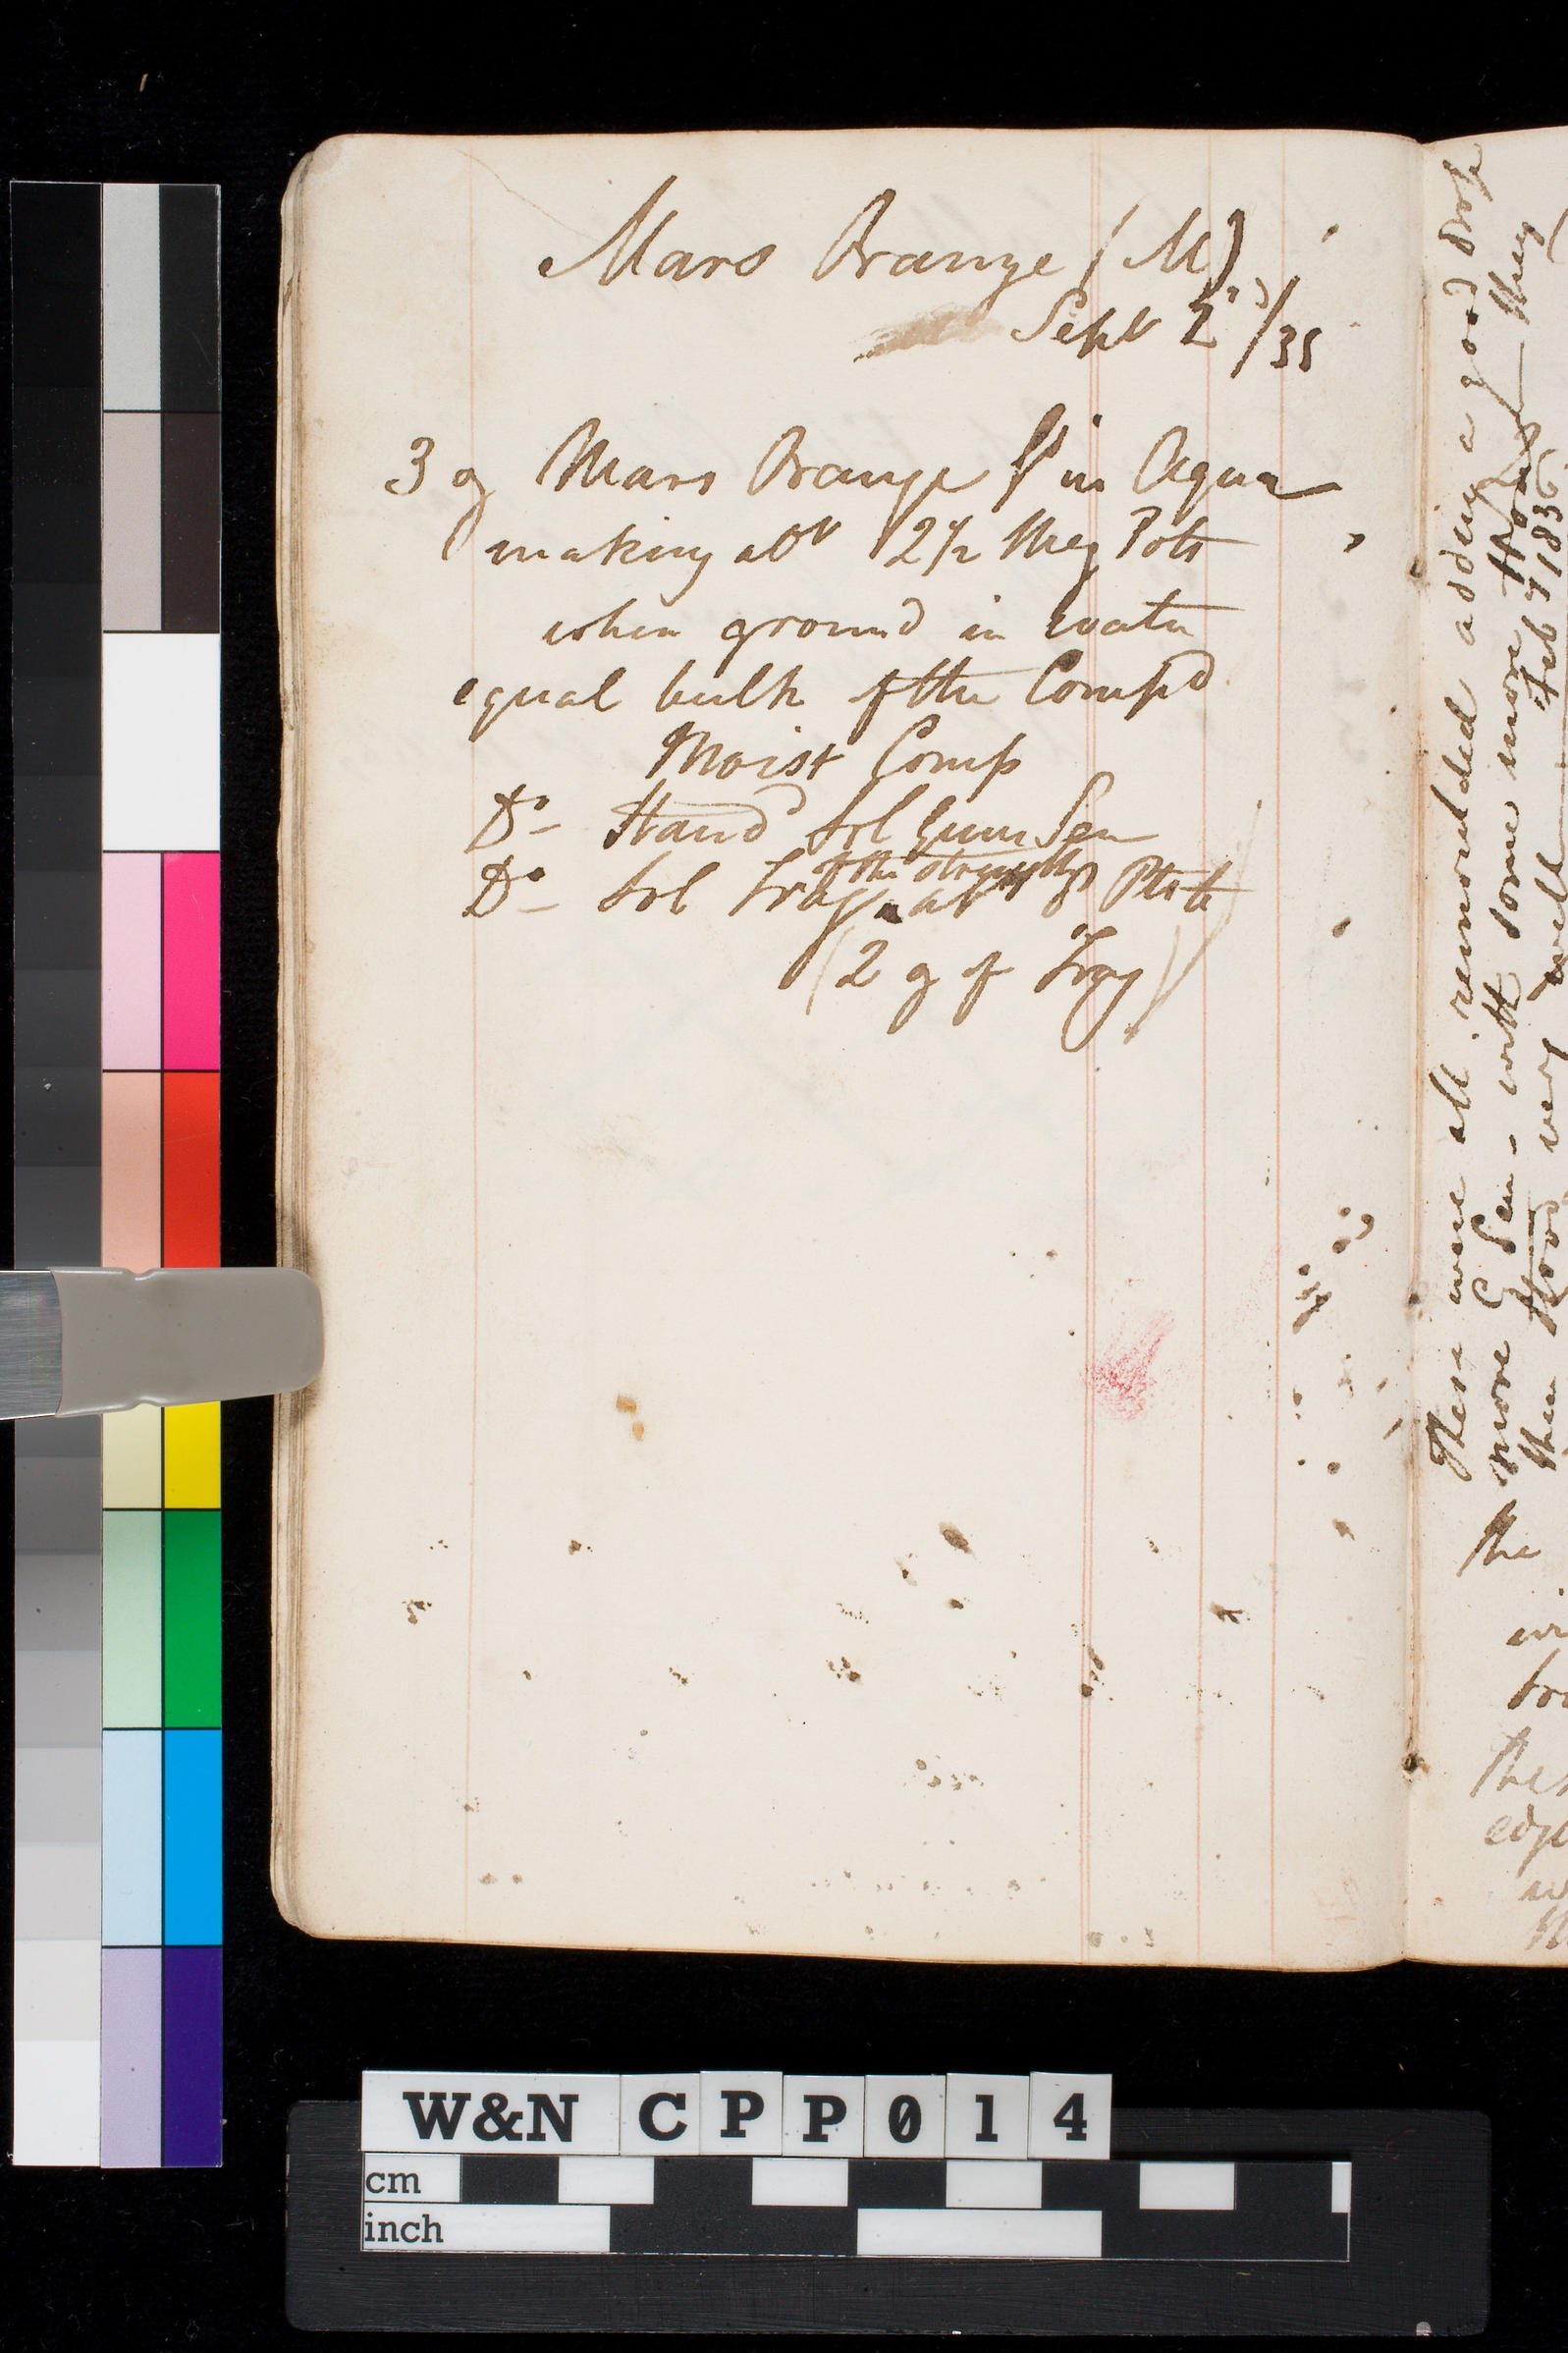 Mars Orange (M)
Sept 2d/35
3 g Mars Orange in Aqua
making abt 2 1/2 Meg Pots
when ground in water
equal bulk of the Compd
Moist Comp
Do - Stand Sol Gum Sen
of the strength
Do - Sol Trag at Pts to
(2 g of Trag)
These were all remoulded adding a good drop
more G Sen - with some more Honey they
then stood very well Feb 7 1836
the
W&N CPP014
cm
inch